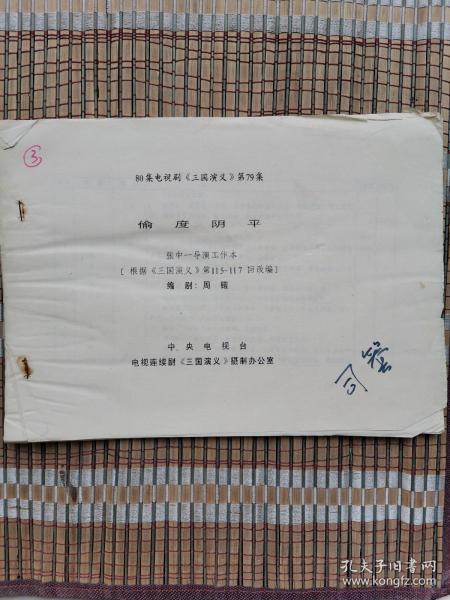 ③
80集电视剧《三国演义》第79集
偷度阴平
张中一导演工作本
[根据《三国演义》第115-117回改编]
编剧:周锴
中央电视台
电视连续剧《三国演义》摄制办公室
孔夫子旧书网
www.kongfz.com